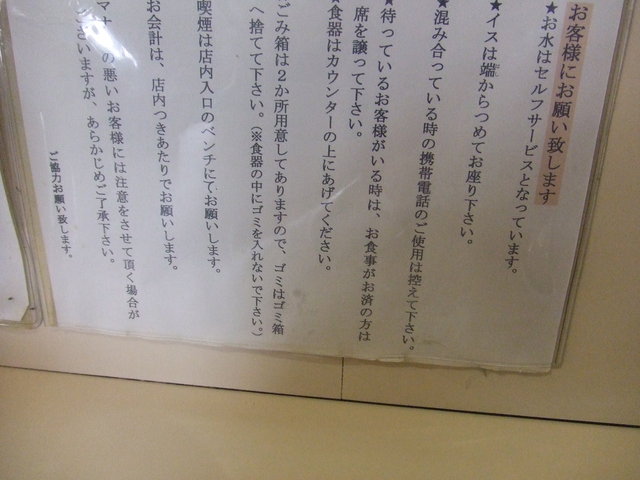 お客様にお願い致します
★お水はセルフサービスとなっています。
★イスは端からつめてお座り下さい。
★混み合っている時の携帯電話のご使用は控えて下さい。
★待っているお客様がいる時は、お食事がお済の方は
席を譲って下さい。
★食器はカウンターの上にあげてください。
ごみ箱は2か所用意してありますので、ゴミはゴミ箱
へ捨てて下さい。(※食器の中にゴミを入れないで下さい。)
喫煙は店内入口のベンチにてお願いします。
お会計は、店内つきあたりでお願いします。
マナーの悪いお客様には注意をさせて頂く場合が
ございますが、あらかじめご了承下さい。
ご協力お願い致します。